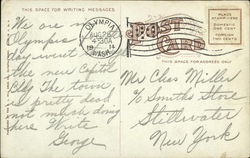 THIS SPACE FOR WRITING MESSAGES
POST CARD
PLACE
STAMP HERE
DOMESTIC
ONE CENT
FOREIGN
TWO CENTS
OLYMPIA
AUG 26
4:30 PM
1914
WASH.
THIS SPACE FOR ADDRESS ONLY
We are
Olympia
day went
the new Capitol
Bldg The Town
is pretty dead
not much doing
here Write
George
Mrs Chas Miller
c/o Smiths Store
Stillwater
New York